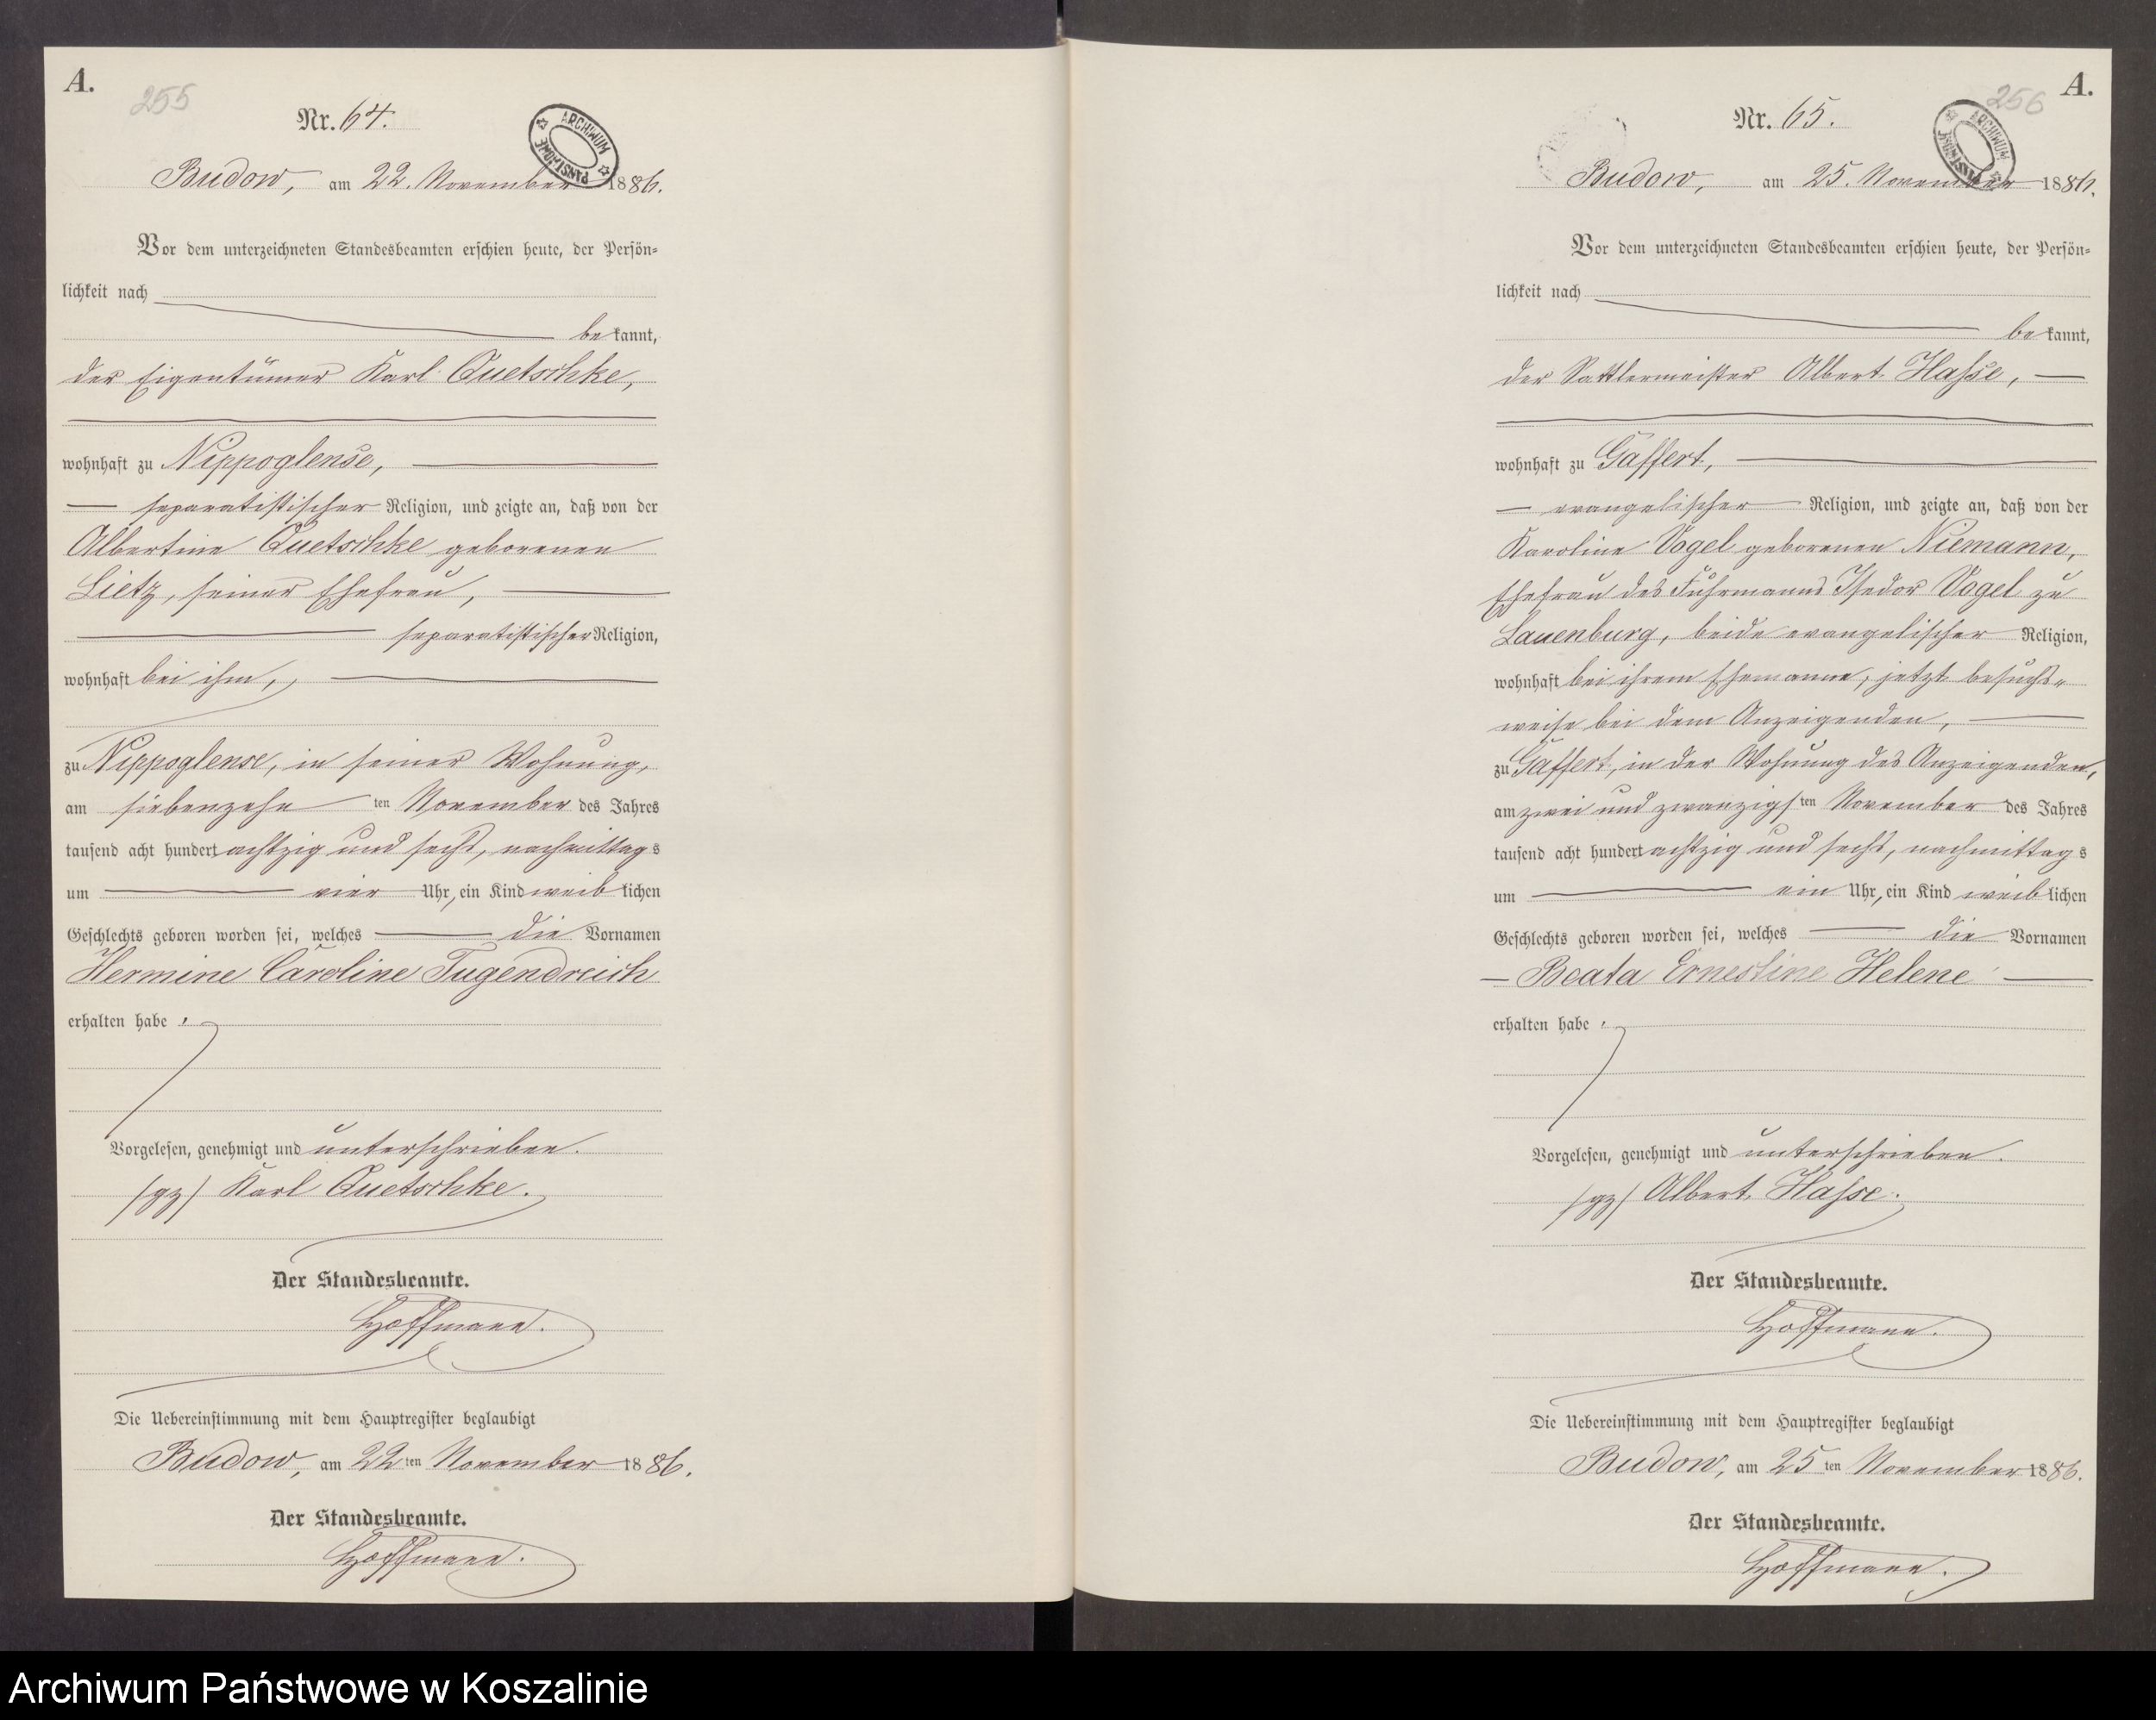 A.
255
Nr. 64.
ARCHIWUM PAŃSTWOWE
Budow, am 22. November 1886.
Vor dem unterzeichneten Standesbeamten erschien heute, der Persön-
lichkeit nach
bekannt,
der Eigentümer Karl Quetschke,
wohnhaft zu Nippoglense,
separatistischer Religion, und zeigte an, daß von der
Albertine Quetschke geborenen
Lietz, seiner Ehefrau,
separatistischer Religion,
wohnhaft bei ihm,
zu Nippoglense, in seiner Wohnung,
am siebenzehn ten November des Jahres
tausend acht hundert achtzig und sechs, nachmittags
um vier Uhr, ein Kind weiblichen
Geschlechts geboren worden sei, welches die Vornamen
Hermine Caroline Tugendreich
erhalten habe.
Vorgelesen, genehmigt und unterschrieben.
/gz/ Karl Quetschke.
Der Standesbeamte.
Hoffmann.
Die Uebereinstimmung mit dem Hauptregister beglaubigt
Budow, am 22ten November 1886.
Der Standesbeamte.
Hoffmann.
A.
256
Nr. 65.
ARCHIWUM PAŃSTWOWE
Budow, am 25. November 1886.
Vor dem unterzeichneten Standesbeamten erschien heute, der Persön-
lichkeit nach
bekannt,
der Sattlermeister Albert Hasse,
wohnhaft zu Gaffert,
evangelischer Religion, und zeigte an, daß von der
Karoline Vogel geborenen Niemann,
Ehefrau des Fuhrmanns Isedor Vogel zu
Lauenburg, beide evangelischer Religion,
wohnhaft bei ihrem Ehemanne, jetzt besuchs-
weise bei dem Anzeigenden,
zu Gaffert, in der Wohnung des Anzeigenden,
am zwei und zwanzigsten November des Jahres
tausend acht hundert achtzig und sechs, nachmittags
um ein Uhr, ein Kind weiblichen
Geschlechts geboren worden sei, welches die Vornamen
Beata Ernestine Helene
erhalten habe.
Vorgelesen, genehmigt und unterschrieben.
/gz/ Albert Hasse.
Der Standesbeamte.
Hoffmann.
Die Uebereinstimmung mit dem Hauptregister beglaubigt
Budow, am 25ten November 1886.
Der Standesbeamte.
Hoffmann.
Archiwum Państwowe w Koszalinie